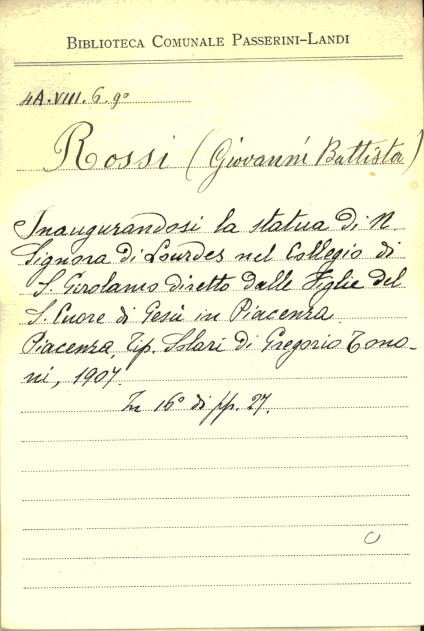 BIBLIOTECA COMUNALE PASSERINI-LANDI
4A.VIII.6.9º
Rossi (Giovanni Battista)
Inaugurandosi la statua di N
Signora di Lourdes nel Collegio di
S. Girolamo diretto dalle Figlie del
S. Cuore di Gesù in Piacenza.
Piacenza, Tip. Solari di Gregorio Tono-
ni, 1907.
In 16º di pp. 27.
C